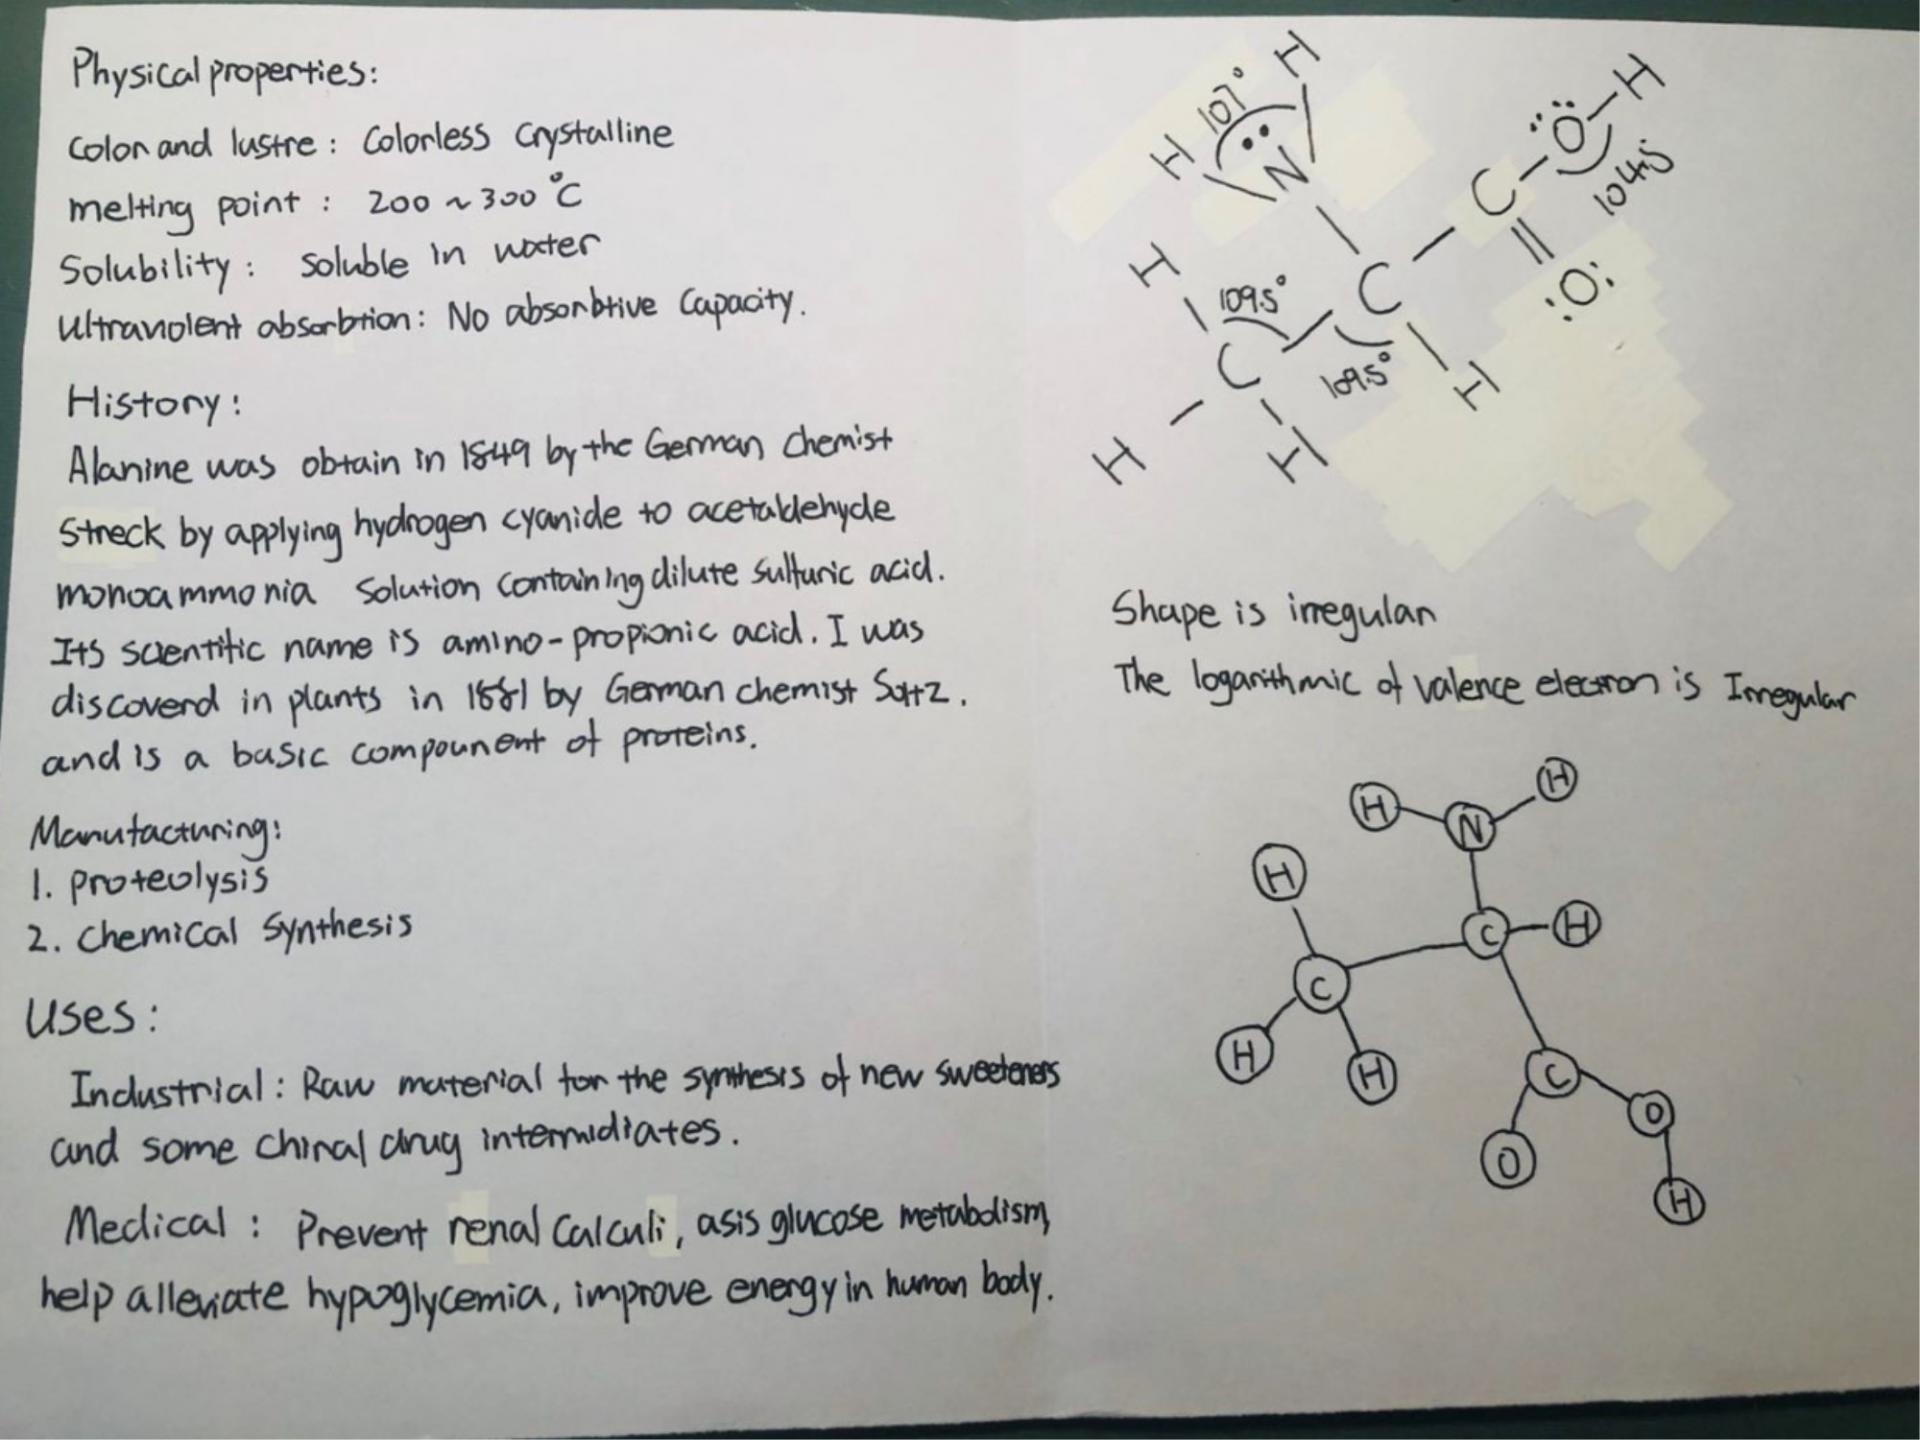 Physical properties:
Color and lustre : Colorless Crystalline
melting point : 200 ~ 300 °C
Solubility : Soluble in water
Ultraviolent absorbtion: No absorbtive Capacity.
History:
Alanine was obtain in 1849 by the German chemist
Streck by applying hydrogen cyanide to acetaldehyde
monoammonia solution containing dilute sulfuric acid.
Its scientific name is amino-propionic acid. I was
discoverd in plants in 1881 by German chemist
and is a basic compounent of proteins.
Manufacturing:
1. Proteolysis
2. Chemical Synthesis
Uses :
Industrial : Raw material for the synthesis of new sweeteners
and some chiral drug intermidiates.
Medical : Prevent renal Calculi, asis glucose metabolism,
help alleviate hypoglycemia, improve energy in human body.
H
107°
H
N
O
H
104.5
C
O
H
109.5°
C
C
109.5°
H
H
H
Shape is irregular
The logarithmic of valence electron is Irregular
H
N
H
H
C
H
C
H
H
C
O
O
H